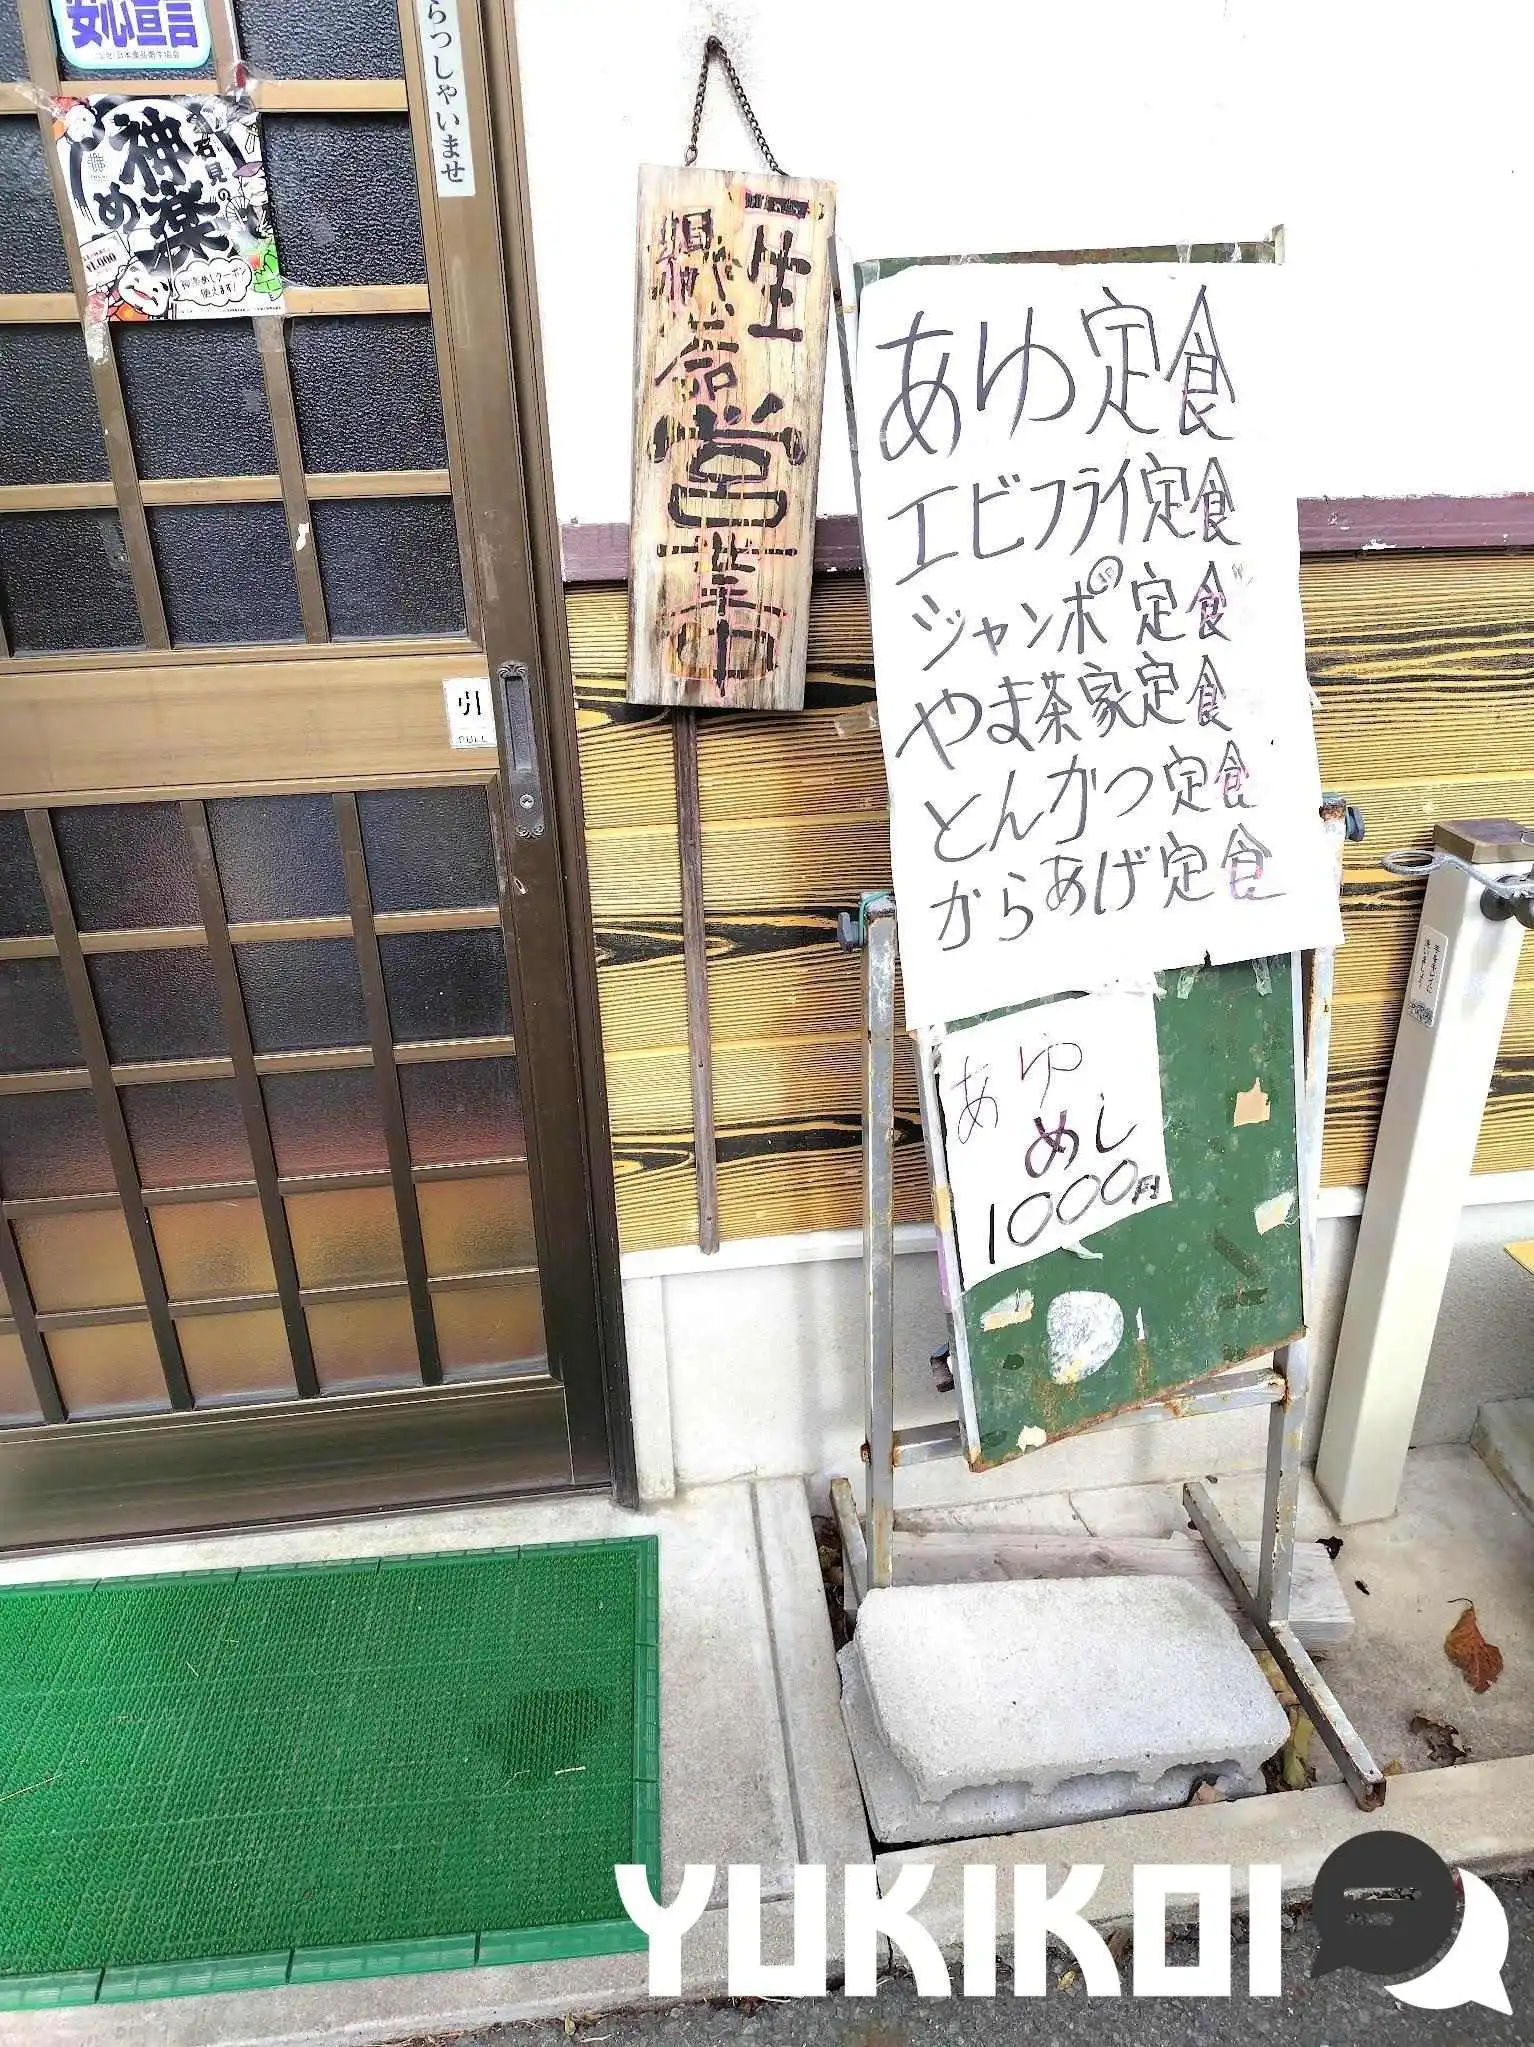 安心宣言
らっしゃいませ
石見の
神楽
め
¥1,000
神楽めしクーポン
使えます!
一生
懸命
営業中
引
PULL
あゆ定食
エビフライ定食
ジャンボ定食
やま茶家定食
とんかつ定食
からあげ定食
あゆ
めし
1000円
YUKIKOI